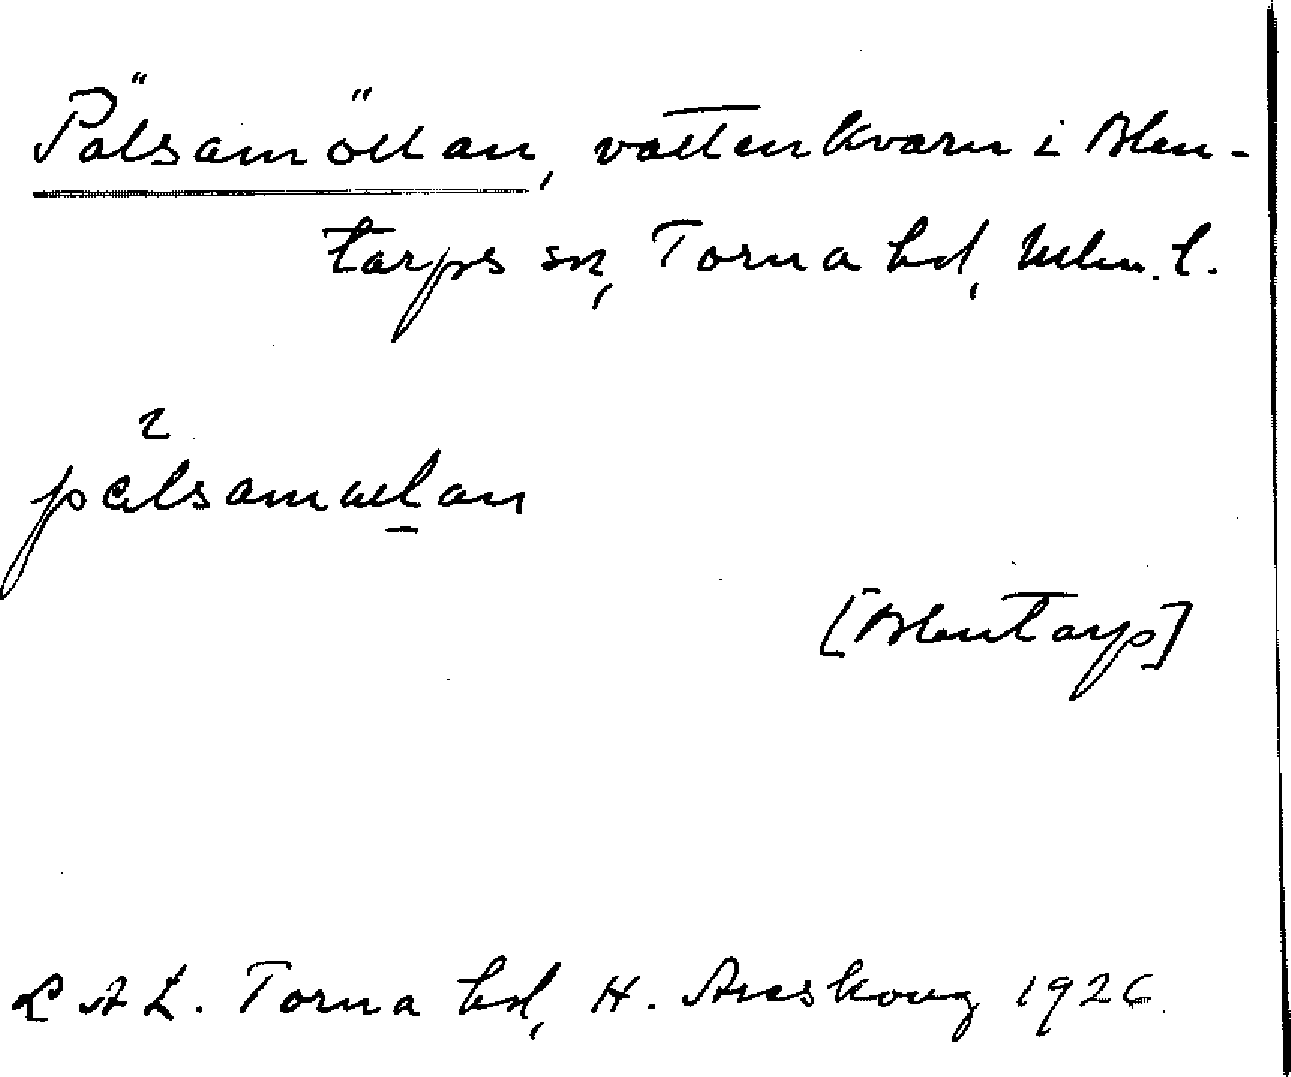 Pälsamöllan, vattenkvarn i Blen-
tarps sn, Torna hd, Mlm. l.
pälsamɯlan
[Blentarp]
L A L. Torna hd, H. Areskoug 1926